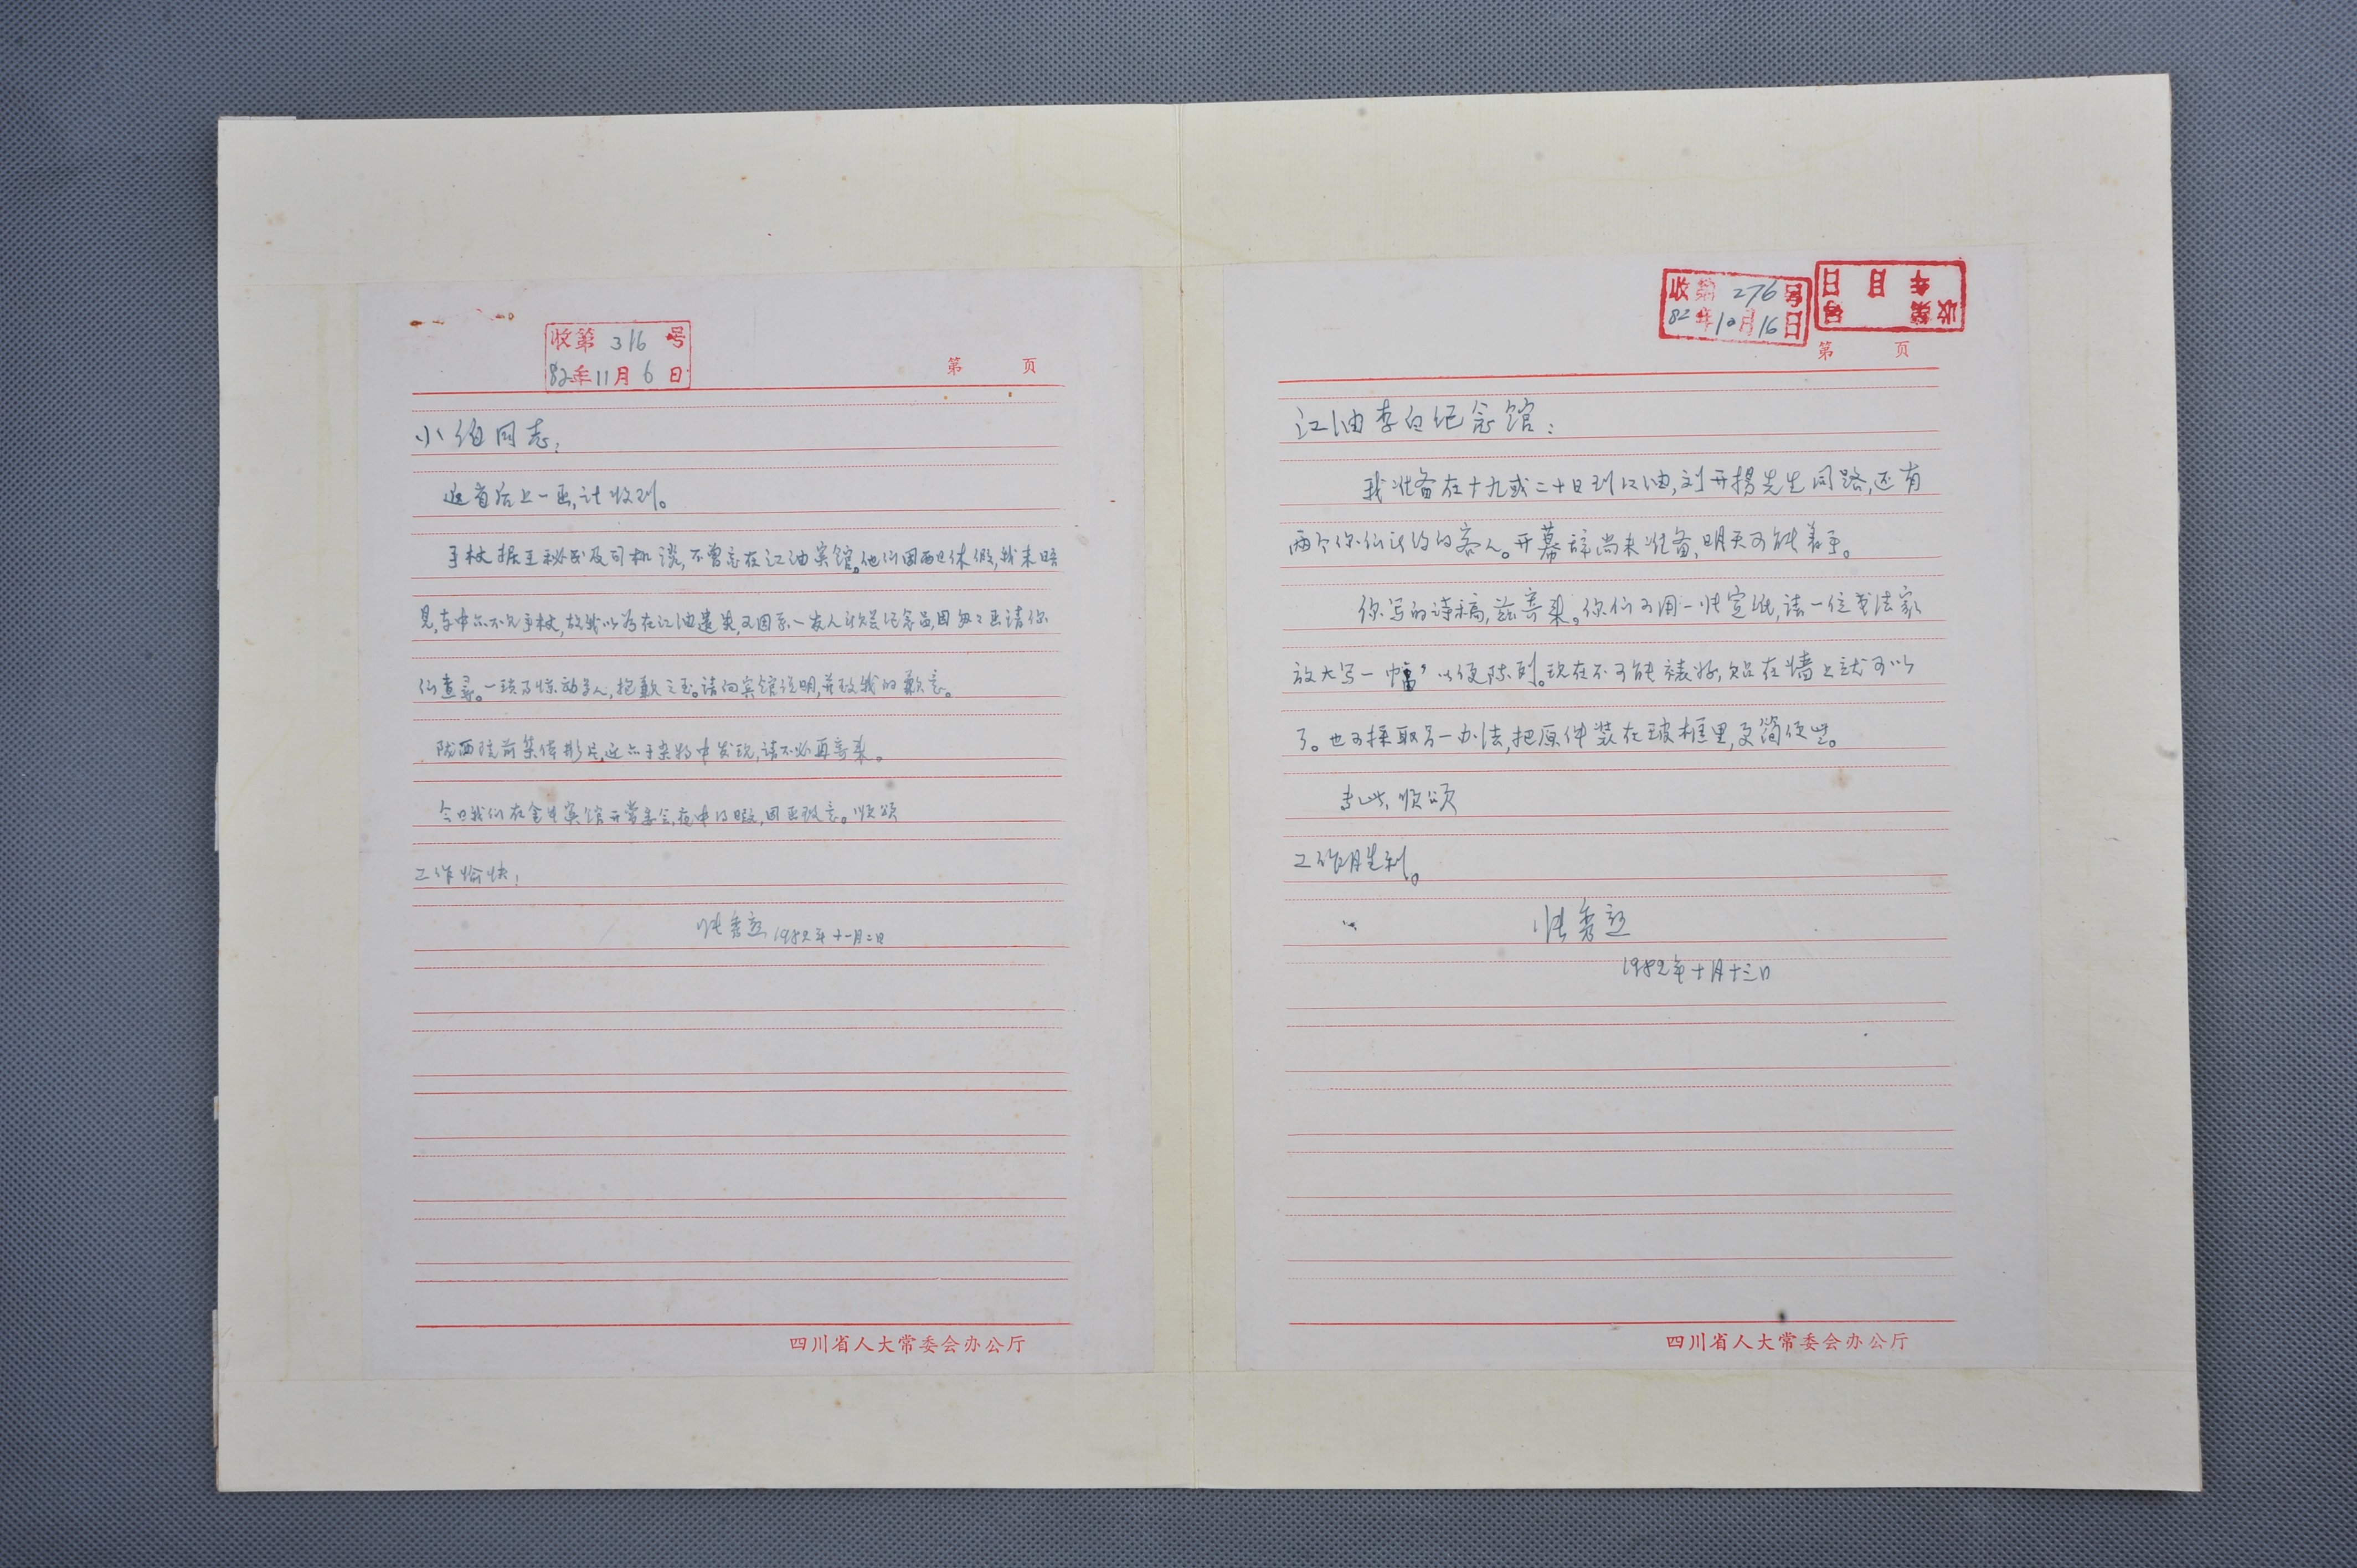 收第 316 号
82年11月6日
第 页
小伯同志：
返省后上一函，计收到。
手杖据王秘书及司机谈，不曾忘在江油宾馆。他们因两日休假，我未晤
见，车中亦不见手杖，故我以为在江油遗失，又因系一友人所赠纪念品，因匆匆函请你
们查寻。一琐事惊动多人，抱歉之至。请向宾馆说明，并致我的歉意。
陇西院前集体影片，近亦于杂物中发现，请不必再寄来。
今日我们在金牛宾馆开常委会，夜中得暇，因函致意。顺颂
工作愉快！
张秀熟 1982年十一月二日
四川省人大常委会办公厅
收第 276 号
82年10月16日
收第 号
年 月 日
第 页
江油李白纪念馆：
我准备在十九或二十日到江油，刘开扬先生同路，还有
两个你们所约的客人。开幕辞尚未准备，明天可能着手。
你写的诗稿，兹寄来。你们可用一张宣纸，请一位书法家
放大写一幅，以便陈列。现在不可能裱好，贴在墙上就可以
了。也可採取另一办法，把原件装在玻框里，更简便些。
专此，顺颂
工作胜利。
张秀熟
1982年十月十三日
四川省人大常委会办公厅